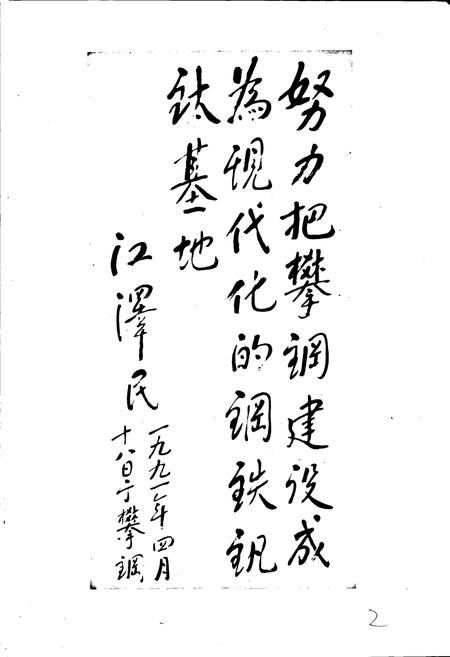 努力把攀鋼建設成
為現代化的鋼鉄釩
鈦基地
江澤民
一九九一年四月
十八日于攀鋼
2